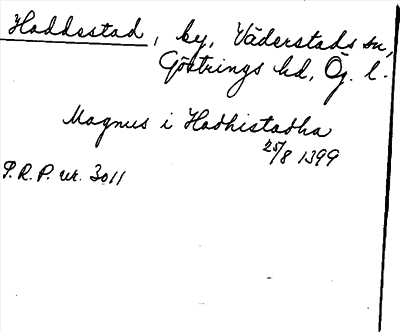 Haddestad, by, Väderstads sn,
Göstrings hd, Ög. l.
Magnus i Hadhistadha
25/8 1399
P.R.P. nr. 3011